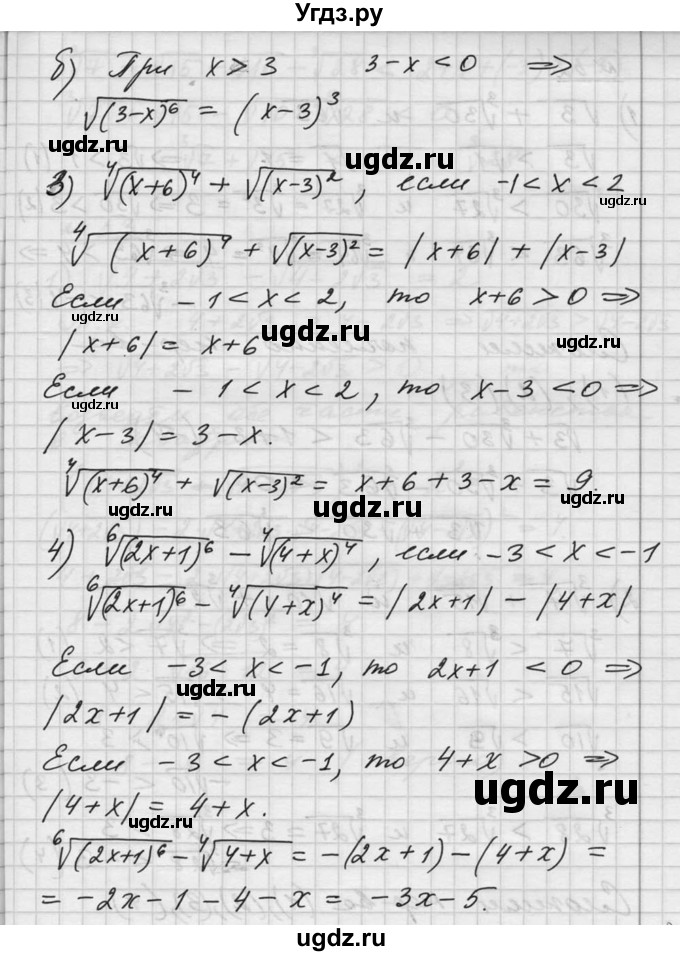 Угдз.ру
б) При x > 3    3-x < 0 ⇒
√(3-x)⁶ = (x-3)³
3) ⁴√(x+6)⁴ + √(x-3)², если -1 < x < 2
⁴√(x+6)⁴ + √(x-3)² = |x+6| + |x-3|
Если -1 < x < 2, то x+6 > 0 ⇒
|x+6| = x+6
Если -1 < x < 2, то x-3 < 0 ⇒
|x-3| = 3-x.
⁴√(x+6)⁴ + √(x-3)² = x+6+3-x = 9.
4) ⁶√(2x+1)⁶ - ⁴√(4+x)⁴, если -3 < x < -1
⁶√(2x+1)⁶ - ⁴√(4+x)⁴ = |2x+1| - |4+x|
Если -3 < x < -1, то 2x+1 < 0 ⇒
|2x+1| = -(2x+1)
Если -3 < x < -1, то 4+x > 0 ⇒
|4+x| = 4+x.
⁶√(2x+1)⁶ - ⁴√4+x = -(2x+1)-(4+x) =
= -2x-1-4-x = -3x-5.
ugdz.ru
ugdz.ru
ugdz.ru
ugdz.ru
ugdz.ru
ugdz.ru
ugdz.ru
ugdz.ru
ugdz.ru
ugdz.ru
ugdz.ru
ugdz.ru
ugdz.ru